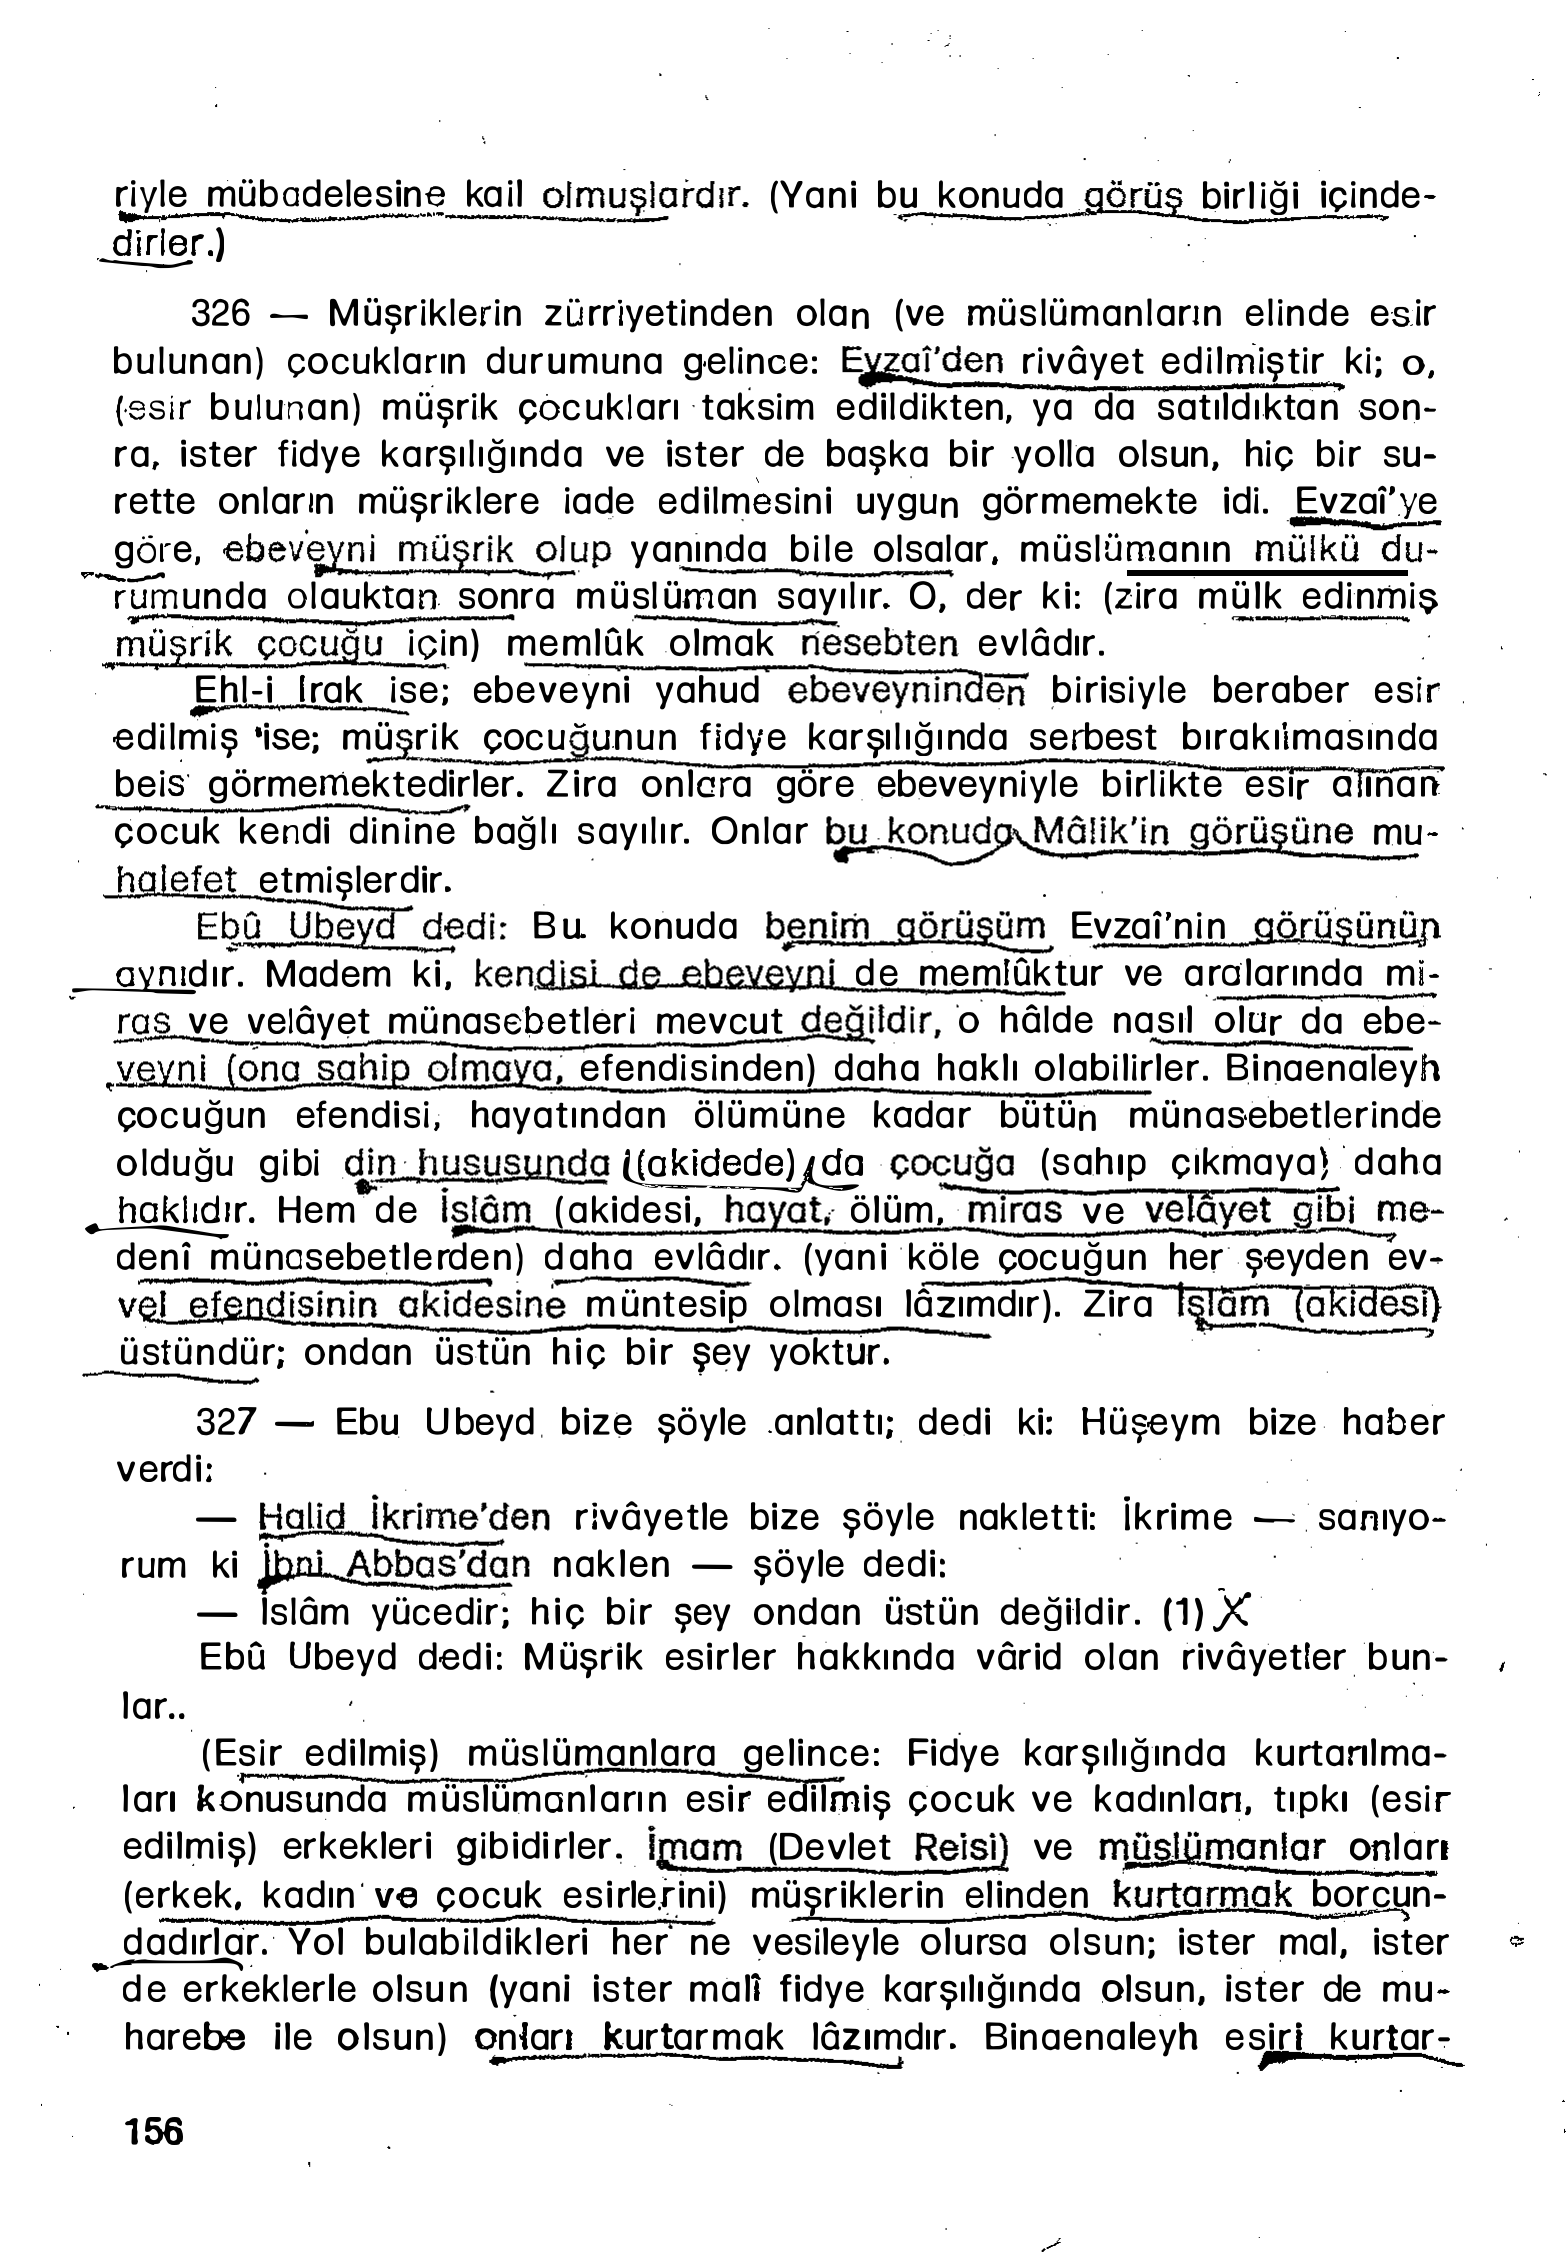 riyle mübadelesine kail olmuşlardır. (Yani bu konuda görüş birliği içinde-
dirler.)
326 — Müşriklerin zürriyetinden olan (ve müslümanların elinde esir
bulunan) çocukların durumuna gelince: Evzaî'den rivâyet edilmiştir ki; o,
(esir bulunan) müşrik çocukları taksim edildikten, ya da satıldıktan son-
ra, ister fidye karşılığında ve ister de başka bir yolla olsun, hiç bir su-
rette onların müşriklere iade edilmesini uygun görmemekte idi. Evzaî'ye
göre, ebeveyni müşrik olup yanında bile olsalar, müslümanın mülkü du-
rumunda olauktan sonra müslüman sayılır. O, der ki: (zira mülk edinmiş
müşrik çocuğu için) memlûk olmak nesebten evlâdır.
Ehl-i Irak ise; ebeveyni yahud ebeveyninden birisiyle beraber esir
edilmiş ise; müşrik çocuğunun fidye karşılığında serbest bırakılmasında
beis görmemektedirler. Zira onlara göre ebeveyniyle birlikte esir alınan
çocuk kendi dinine bağlı sayılır. Onlar bu konuda Mâlik'in görüşüne mu-
halefet etmişlerdir.
Ebû Ubeyd dedi: Bu konuda benim görüşüm Evzaî'nin görüşünün
aynıdır. Madem ki, kendisi de ebeveyni de memlûktur ve aralarında mi-
ras ve velâyet münasebetleri mevcut değildir, o hâlde nasıl olur da ebe-
veyni (ona sahip olmaya, efendisinden) daha haklı olabilirler. Binaenaleyh
çocuğun efendisi, hayatından ölümüne kadar bütün münasebetlerinde
olduğu gibi din hususunda (akidede) da çocuğa (sahıp çıkmaya) daha
haklıdır. Hem de İslâm (akidesi, hayat, ölüm, miras ve velâyet gibi me-
denî münasebetlerden) daha evlâdır. (yani köle çocuğun her şeyden ev-
vel efendisinin akidesine müntesip olması lâzımdır). Zira İslâm (akidesi)
üstündür; ondan üstün hiç bir şey yoktur.
327 — Ebu Ubeyd bize şöyle anlattı; dedi ki: Hüşeym bize haber
verdi:
— Halid İkrime'den rivâyetle bize şöyle nakletti: İkrime — sanıyo-
rum ki İbni Abbas'dan naklen — şöyle dedi:
— İslâm yücedir; hiç bir şey ondan üstün değildir. (1) X
Ebû Ubeyd dedi: Müşrik esirler hakkında vârid olan rivâyetler bun-
lar..
(Esir edilmiş) müslümanlara gelince: Fidye karşılığında kurtarılma-
ları konusunda müslümanların esir edilmiş çocuk ve kadınları, tıpkı (esir
edilmiş) erkekleri gibidirler. İmam (Devlet Reisi) ve müslümanlar onları
(erkek, kadın ve çocuk esirlerini) müşriklerin elinden kurtarmak borcun-
dadırlar. Yol bulabildikleri her ne vesileyle olursa olsun; ister mal, ister
de erkeklerle olsun (yani ister malî fidye karşılığında olsun, ister de mu-
harebe ile olsun) onları kurtarmak lâzımdır. Binaenaleyh esiri kurtar-
156